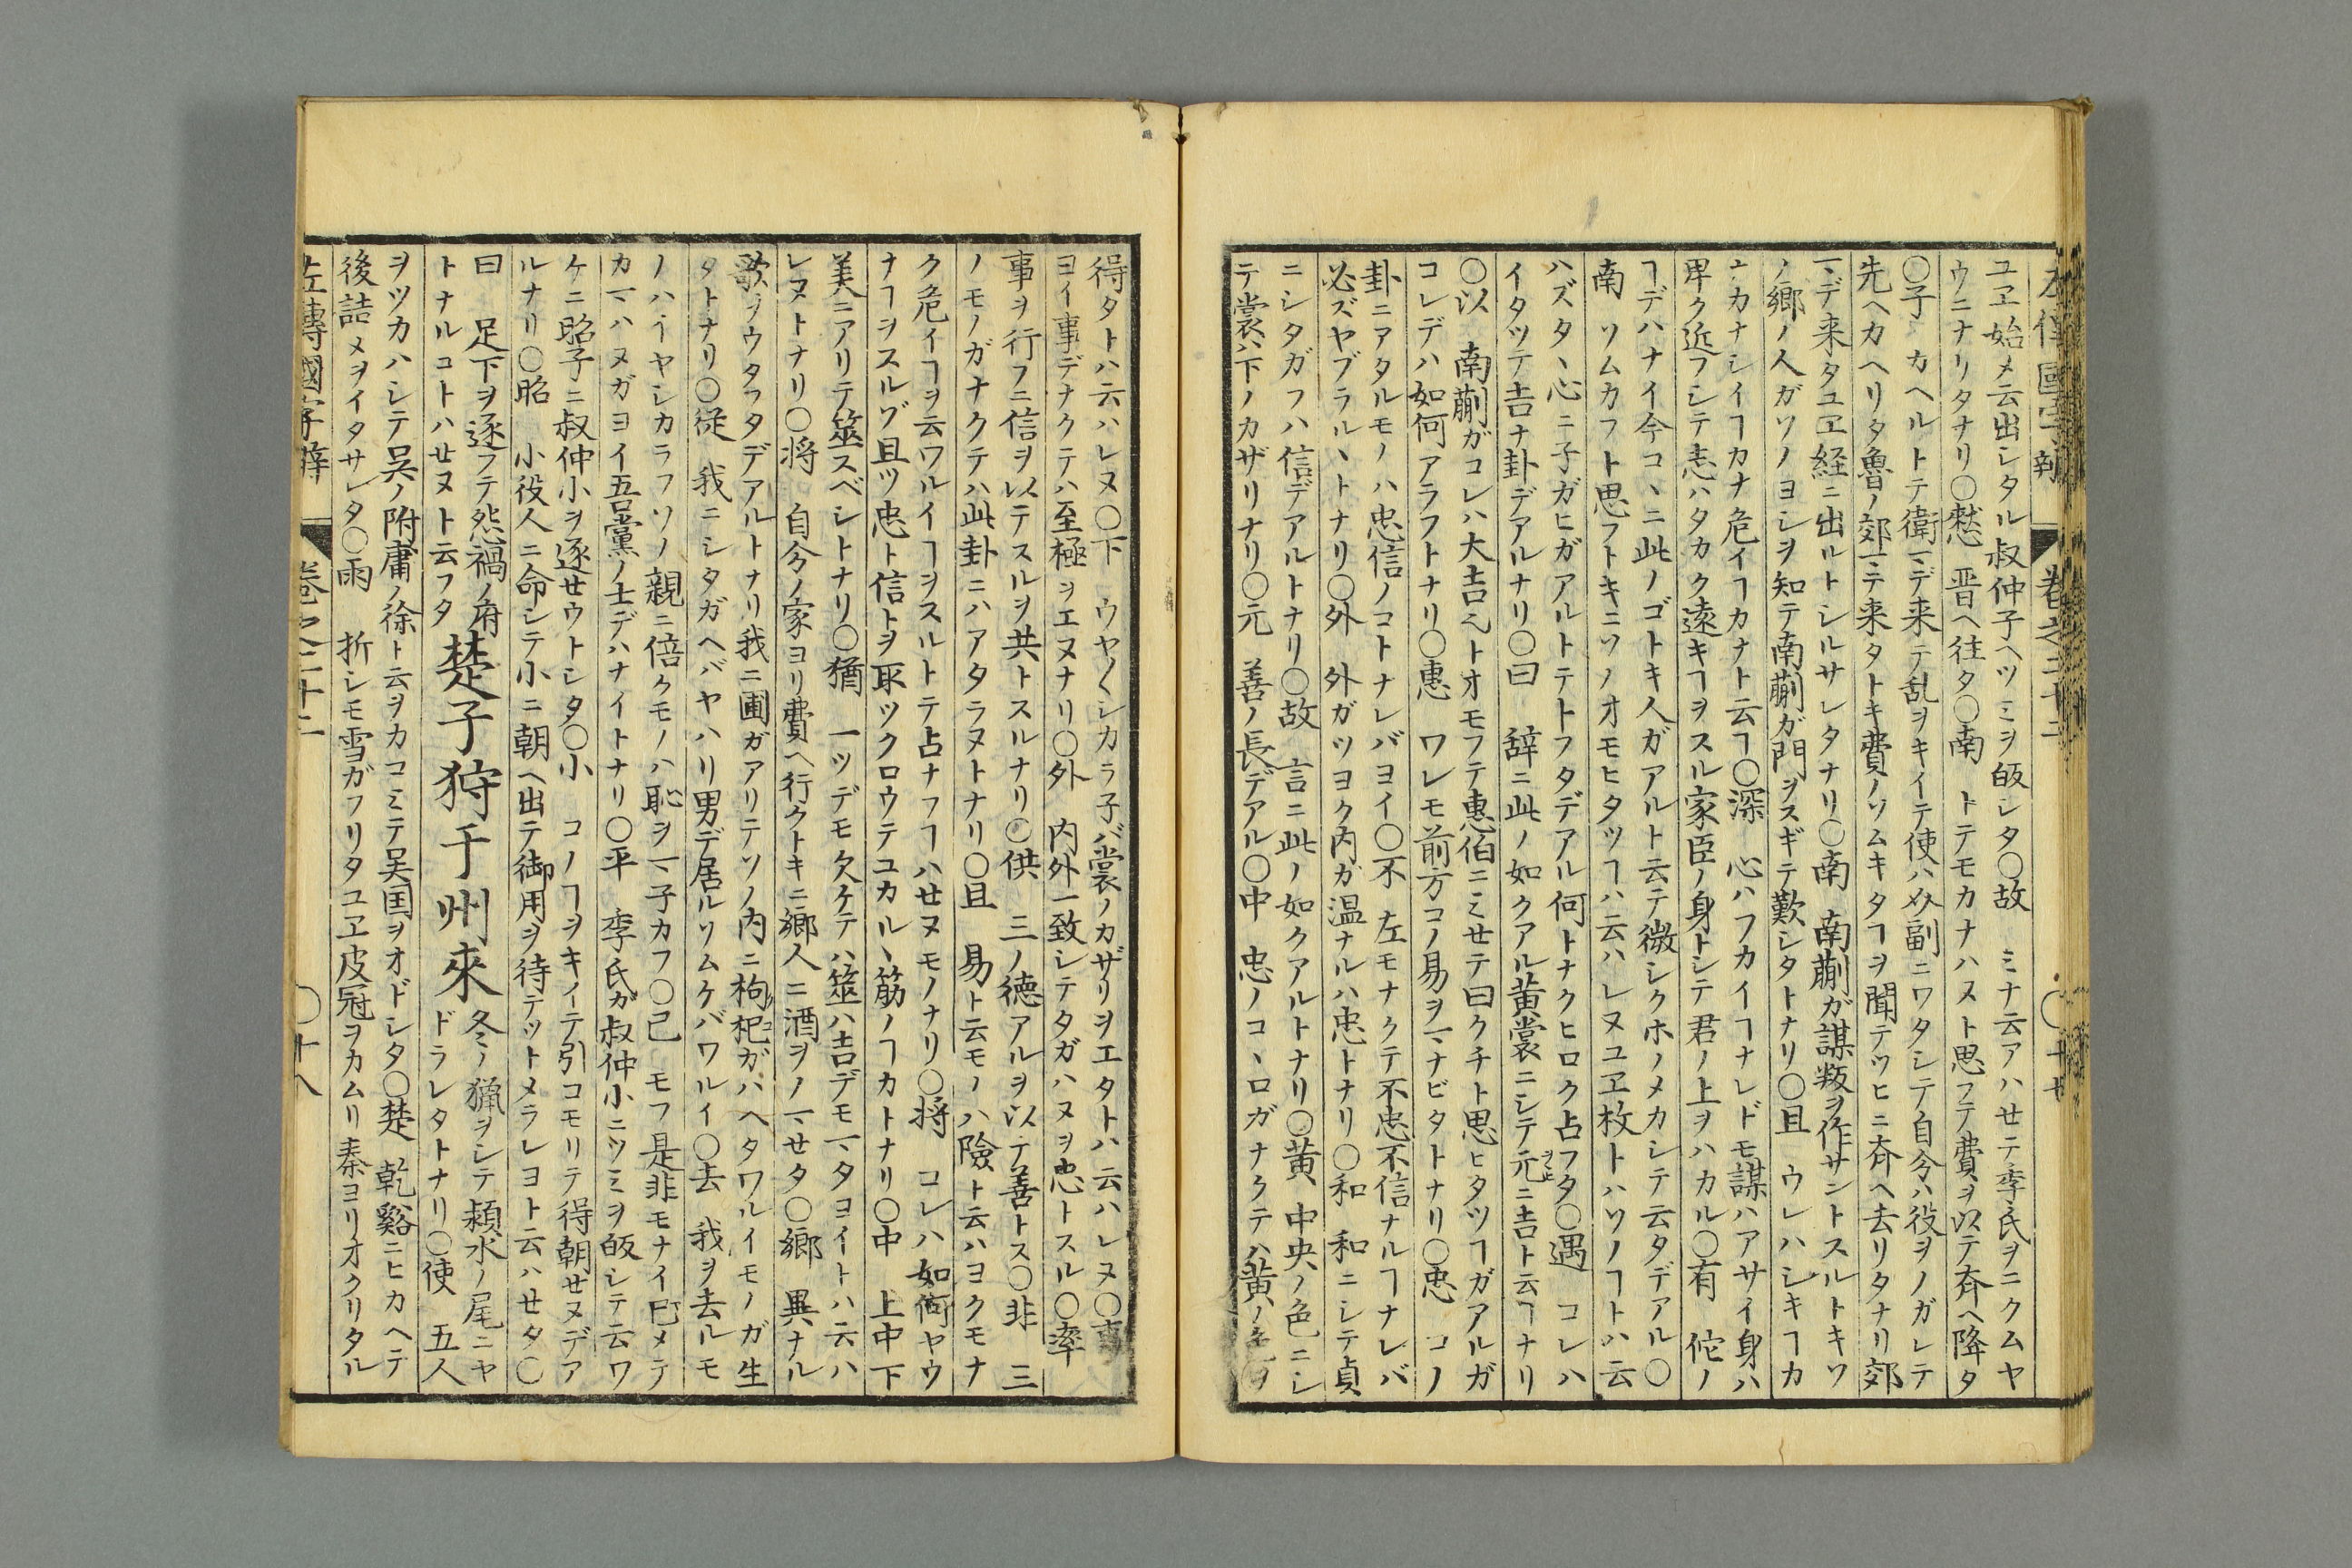 左傳國字辯 巻之二十二 〇十七
ユヱ始メ云出シタル叔仲子ヘツミヲ皈シタ〇故 ミナ云アハせテ季氏ヲニクムヤ
ウニナリタナリ〇憖 晋ヘ往タ〇南 トテモカナハヌト思フテ費ヲ以テ斉ヘ降タ
〇子 カヘルトテ衛マデ来テ乱ヲキイテ使ハ介副ニワタシテ自今ハ役ヲノガレテ
先ヘカヘリタ魯ノ郊マテ来タトキ費ノソムキタヿヲ聞テツヒニ斉ヘ去リタナリ郊
マデ来タユヱ経ニ出ルトシルサレタナリ〇南 南蒯ガ謀叛ヲ作サントスルトキソ
ノ郷ノ人ガソノヨシヲ知テ南蒯ガ門ヲスギテ歎シタトナリ〇且 ウレハシキヿカ
ナカナシイヿカナ危イヿカナト云ヿ〇深 心ハフカイヿナレドモ謀ハアサイ身ハ
卑ク近フシテ志ハタカク遠キヿヲスル家臣ノ身トシテ君ノ上ヲハカル〇有 佗ノ
ヿデハナイ今コヽニ此ノゴトキ人ガアルト云テ微シクホノメカシテ云タデアル〇
南 ソムカフト思フトキニソノオモヒタツヿハ云ハレヌユヱ枚トハソノヿトハ云
ハズタヽ心ニ子ガヒガアルトテトフタデアル何トナクヒロク占フタ〇遇 コレハ
イタツテ吉ナ卦デアルナリ〇曰 辞ニ此ノ如クアル黄裳ニシテ元ニ吉ト云ヿナリ
〇以 南蒯ガコレハ大吉ヂトオモフテ惠伯ニミせテ曰クチト思ヒタツヿガアルガ
コレデハ如何アラフトナリ〇惠 ワレモ前方コノ易ヲマナビタトナリ〇忠 コノ
卦ニアタルモノハ忠信ノコトナレバヨイ〇不 左モナクテ不忠不信ナルヿナレバ
必ズヤブラルヽトナリ〇外 外ガツヨク内ガ温ナルハ忠トナリ〇和 和ニシテ貞
ニシタガフハ信デアルトナリ〇故 言ニ此ノ如クアルトナリ〇黄 中央ノ色ニシ
テ裳ハ下ノカザリナリ〇元 善ノ長デアル〇中 忠ノコヽロガナクテハ黄ノ色ヲ
得タトハ云ハレヌ〇下 ウヤ〱シカラ子バ裳ノカザリヲエタトハ云ハレヌ〇事
ヨイ事デナクテハ至極ヲエヌナリ〇外 内外一致シテタガハヌヲ忠トスル〇率
事ヲ行フニ信ヲ以テスルヲ共トスルナリ〇供 三ノ徳アルヲ以テ善トス〇非 三
ノモノガナクテハ此卦ニハアタラヌトナリ〇且 易ト云モノハ險ト云ハヨクモナ
ク危イヿヲ云ワルイヿヲスルトテ占ナフヿハせヌモノナリ〇将 コレハ如何ヤウ
ナヿヲスルゾ且ツ忠ト信トヲ取ツクロウテユカルヽ筋ノヿカトナリ〇中 上中下
美ニアリテ筮スベシトナリ〇猶 一ツデモ欠ケテハ筮ハ吉デモマタヨイトハ云ハ
レヌトナリ〇将 自今ノ家ヨリ費ヘ行クトキニ郷人ニ酒ヲノマせタ〇郷 異ナル
歌ヲウタフタデアルトナリ我ニ圃ガアリテソノ内ニ枸杞ガハヘタワルイモノガ生
タトナリ〇従 我ニシタガヘバヤハリ男デ居ルソムケバワルイ〇去 我ヲ去ルモ
ノハイヤシカラフソノ親ニ倍クモノハ恥ヲマ子カフ〇已 モフ是非モナイ已メテ
カマハヌガヨイ吾黨ノ士デハナイトナリ〇平 季氏ガ叔仲小ニツミヲ皈シテ云ワ
ケニ昭子ニ叔仲小ヲ逐せウトシタ〇小 コノヿヲキイテ引コモリテ得朝せヌデア
ルナリ〇昭 小役人ニ命シテ小ニ朝ヘ出テ御用ヲ待テツトメラレヨト云ハせタ〇
曰 足下ヲ逐フテ怨禍ノ府
トナルコトハせヌト云フタ
楚子狩于州來
冬ノ獵ヲシテ頴水ノ尾ニヤ
ドラレタトナリ〇使 五人
ヲツカハシテ吴ノ附庸ノ徐ト云ヲカコミテ吴国ヲオドシタ〇楚 乾谿ニヒカヘテ
後詰メヲイタサレタ〇雨 折シモ雪ガフリタユヱ皮冠ヲカムリ秦ヨリオクリタル
左傳國字辯 巻之二十二 〇十八